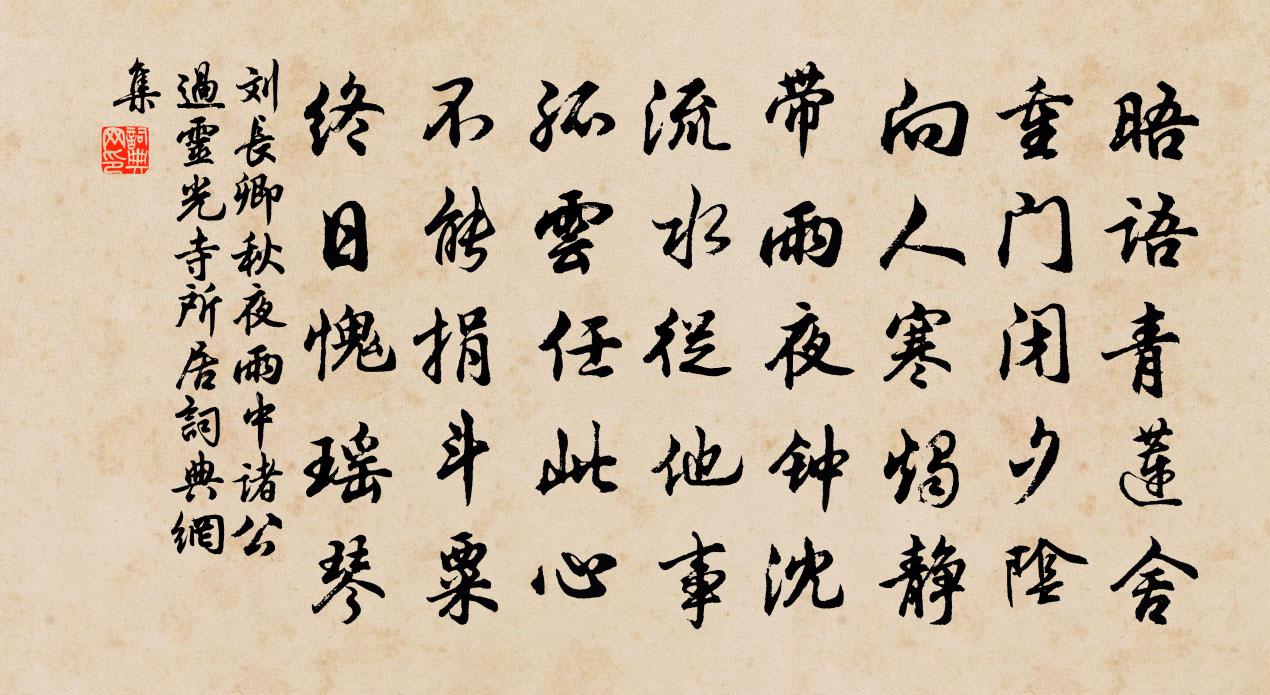 晤语青莲舍
重门闭夕陰
向人寒燭静
带雨夜钟沈
流水從他事
孤雲任此心
不能捐斗粟
终日愧瑶琴
刘長卿秋夜雨中诸公
過靈光寺所居詞典網
集
詞典
网印